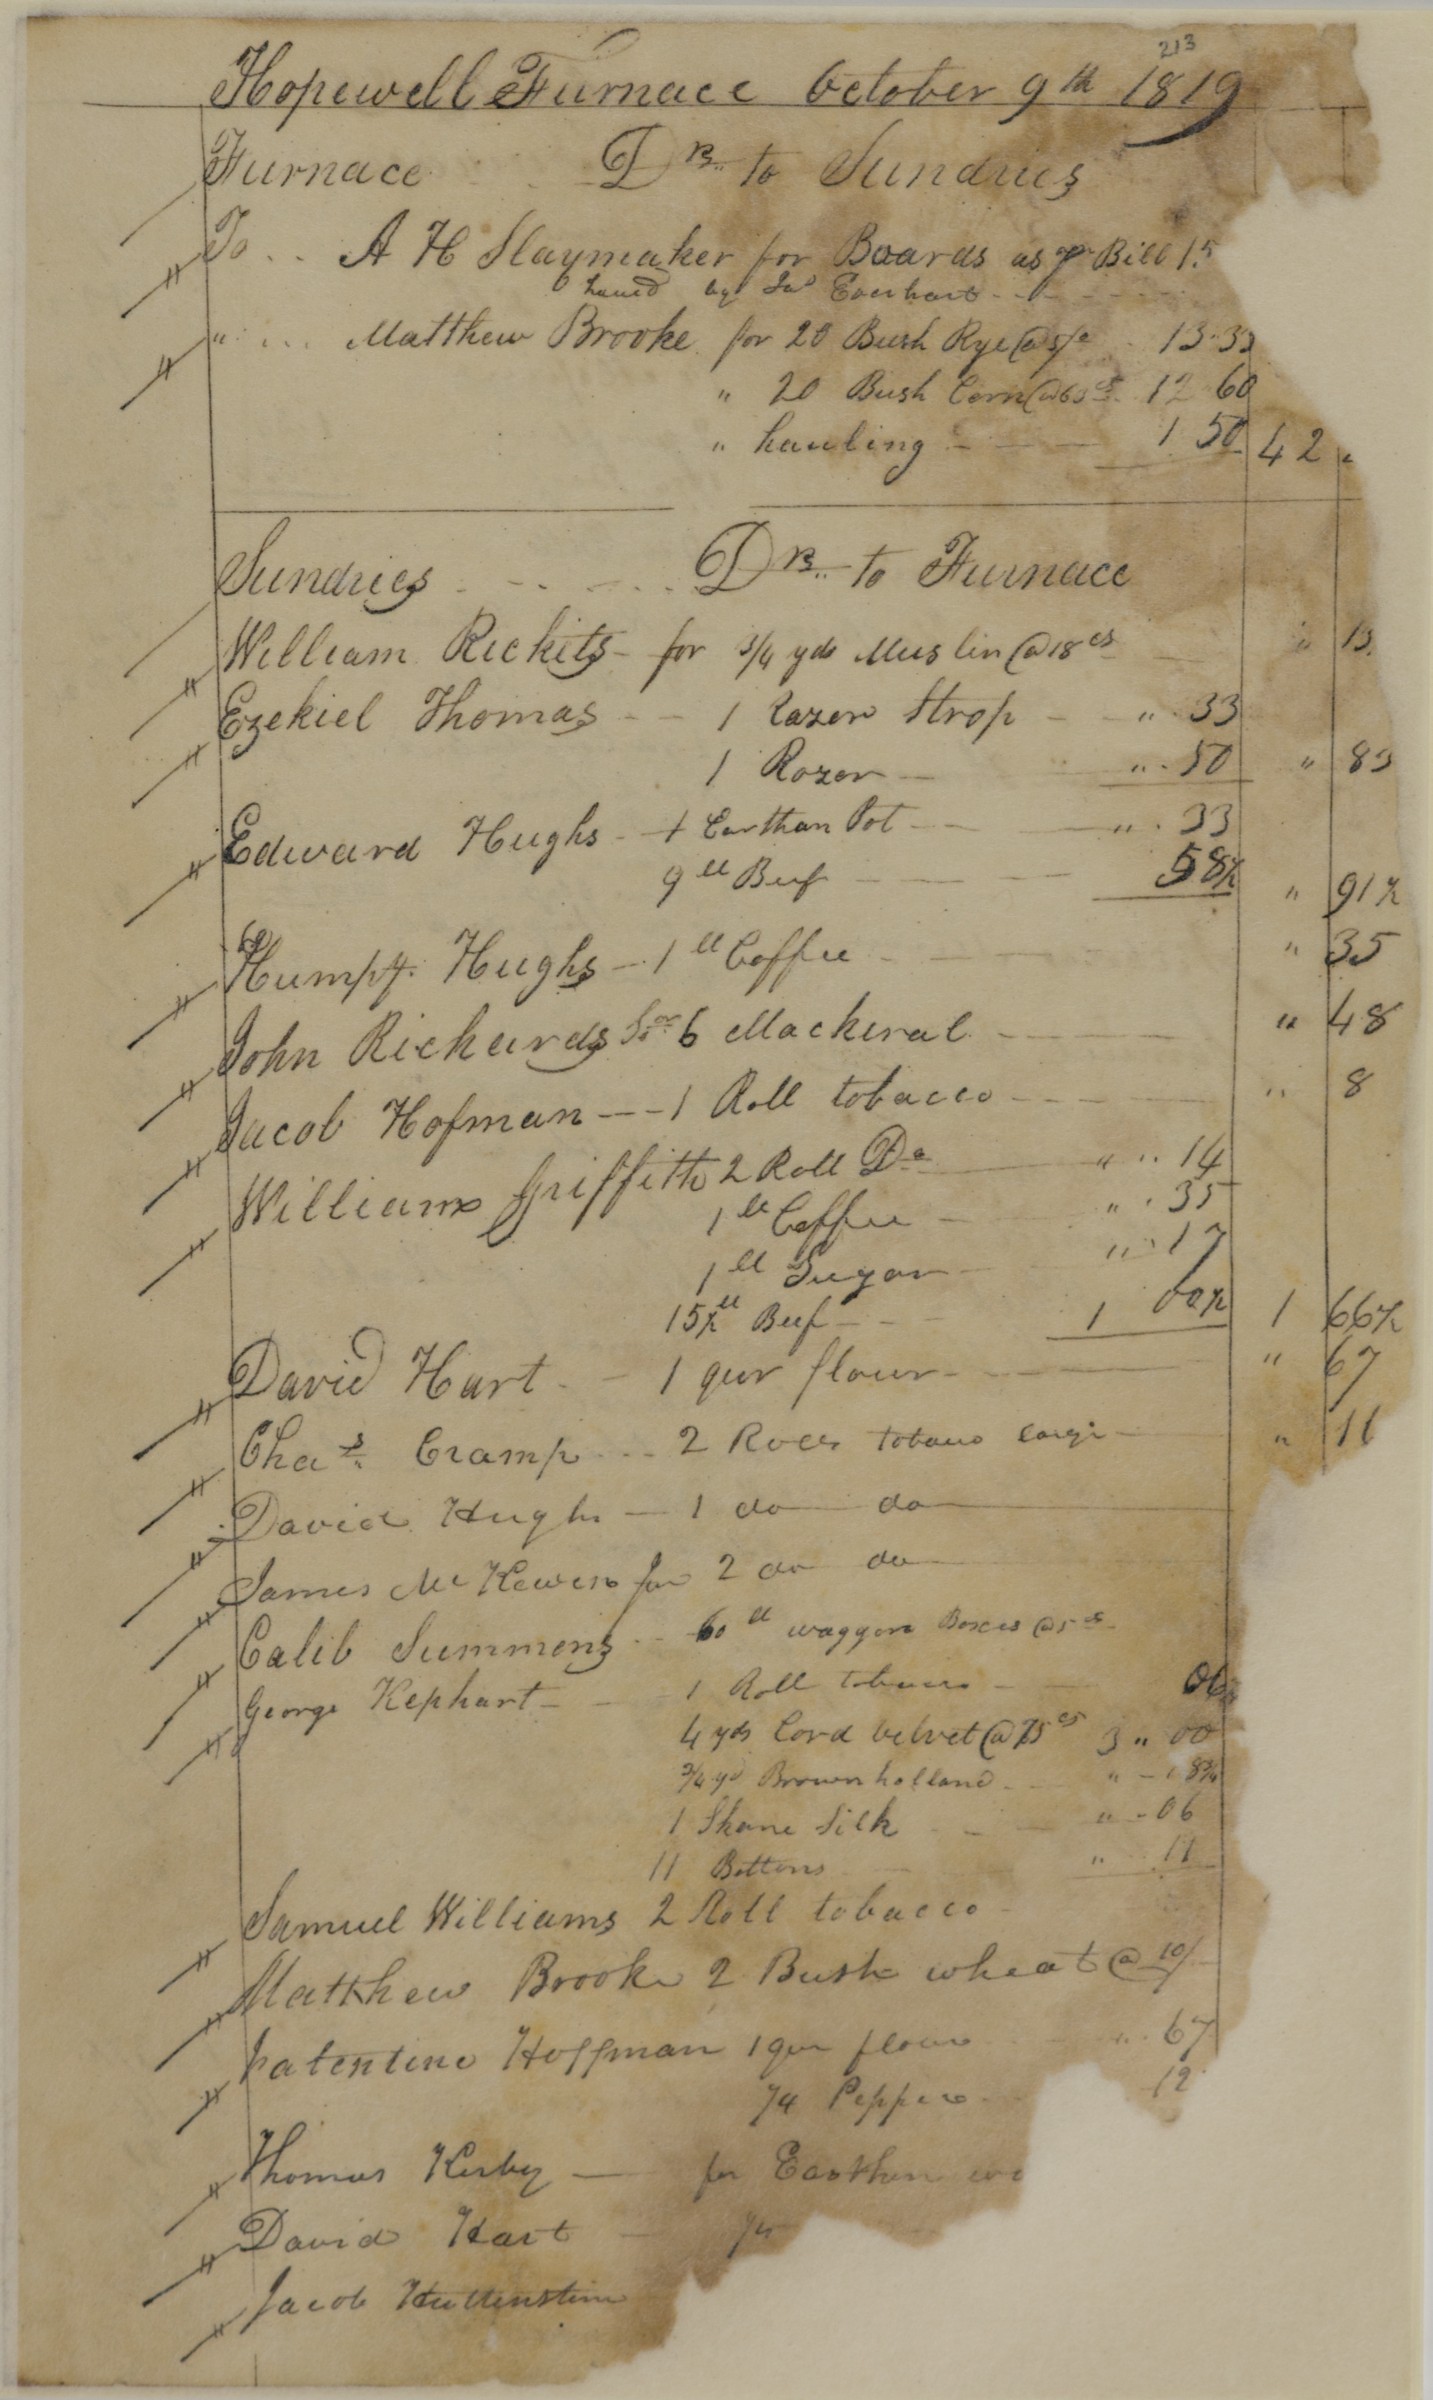 213
Hopewell Furnace October 9th 1819
Furnace Dr to Sundries
To .. A H Slaymaker for Boards as pr Bill 15
hauld by Jas Everhart
" ... Matthew Brooke for 20 Bush Rye @ 5/ 13.33
" 20 Bush Corn @ 63 cs 12 60
" hauling 1 50 42
Sundries Dr to Furnace
William Rickets for 3/4 yds Muslin @ 18 cs " 13
Ezekiel Thomas 1 Razor Strop " 33
1 Razor " 50 " 83
Edward Hughs 1 Earthan Pot " 33
9 ll Beef 58 1/2 " 91 1/2
Humpy. Hughs 1 ll Coffee " 35
John Richards Sr 6 Mackeral " 48
Jacob Hofman 1 Roll tobacco " 8
William Griffith 2 Roll Do " 14
1 ll Coffee " 35
1 ll Sugar " 17
15 1/2 ll Beef 1 00 1/2 1 66 1/2
David Hart 1 qur flour " 67
Chas. Cramp 2 Rolls tobacco large " 11
David Hughs 1 do do
James McKewen for 2 do do
Calib Summons 60 ll waggon Boxes @ 5 cs
George Kephart 1 Roll tobacco 06
4 yds Cord velvet @ 75 cs 3 " 00
3/4 yd Brown holland " 18 3/4
1 Skane Silk " 06
11 Bottons " 11
Samuel Williams 2 Roll tobacco
Matthew Brooke 2 Bush wheat @ 10/
Valentine Hoffman 1 qur flour " 67
1/4 Pepper 12
Thomas Kirby for Earthen
David Hart
Jacob Huttenstine